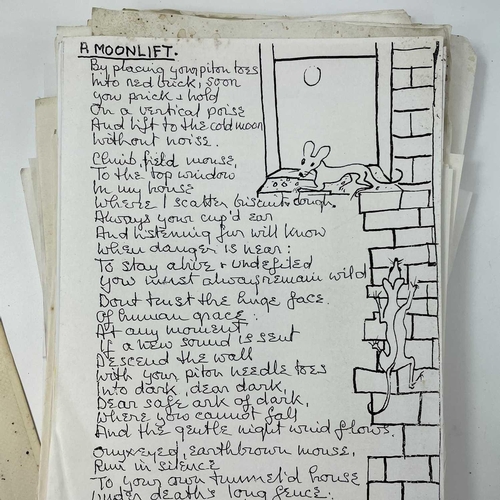 A MOONLIFT.
By placing your piton toes
Into red brick, soon
You prick & hold
On a vertical poise
And lift to the cold moon
Without noise.
Climb, field mouse,
To the top window
In my house
Where I scatter biscuit dough.
Always your cup'd ear
And listening fur will know
When danger is near:
To stay alive & undefiled
You must always remain wild
Dont trust the huge face
Of human grace:
At any moment
If a new sound is sent
Descend the wall
With your piton needle toes
Into dark, dear dark,
Dear safe ark of dark,
Where you cannot fall
And the gentle night wind flows.
Onyx-eyed, earthbrown mouse,
Run in silence
To your own tunnel'd house
Under death's long fence: